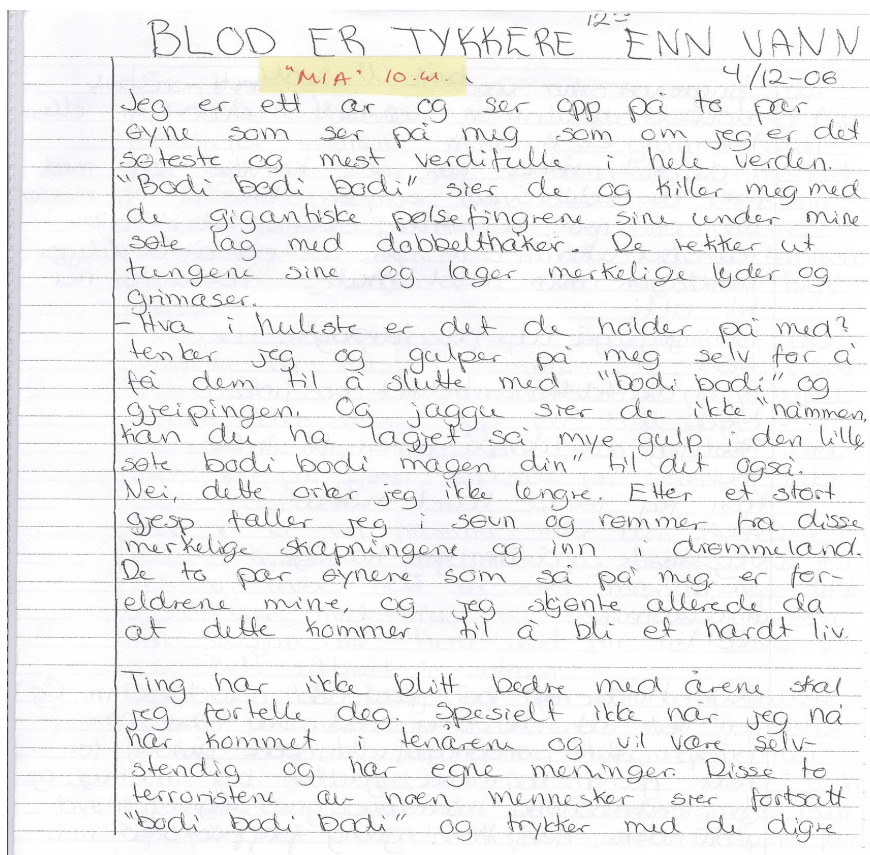 12
BLOD ER TYKKERE ENN VANN
"MIA" 10.kl.
4/12-06
Jeg er ett år og ser opp på to par
øyne som ser på meg som om jeg er det
søteste og mest verdifulle i hele verden.
"Bodi bodi bodi" sier de og killer meg med
de gigantiske pølsefingrene sine under mine
søte lag med dobbelthaker. De rekker ut
tungene sine og lager merkelige lyder og
grimaser.
- Hva i huleste er det de holder på med?
tenker jeg og gulper på meg selv for å
få dem til å slutte med "bodi bodi" og
gjeipingen. Og jaggu sier de ikke "nåmmen,
kan du ha lagjet så mye gulp i den lille
søte bodi bodi magen din" til det også.
Nei, dette orker jeg ikke lengre. Etter et stort
gjesp faller jeg i søvn og rømmer fra disse
merkelige skapningene og inn i drømmeland.
De to par øynene som så på meg, er for-
eldrene mine, og jeg skjønte allerede da
at dette kommer til å bli et hardt liv.
Ting har ikke blitt bedre med årene skal
jeg fortelle deg. Spesielt ikke når jeg nå
har kommet i tenårene og vil være selv-
stendig og har egne meninger. Disse to
terroristene av noen mennesker sier fortsatt
"bodi bodi bodi" og trykker med de digre